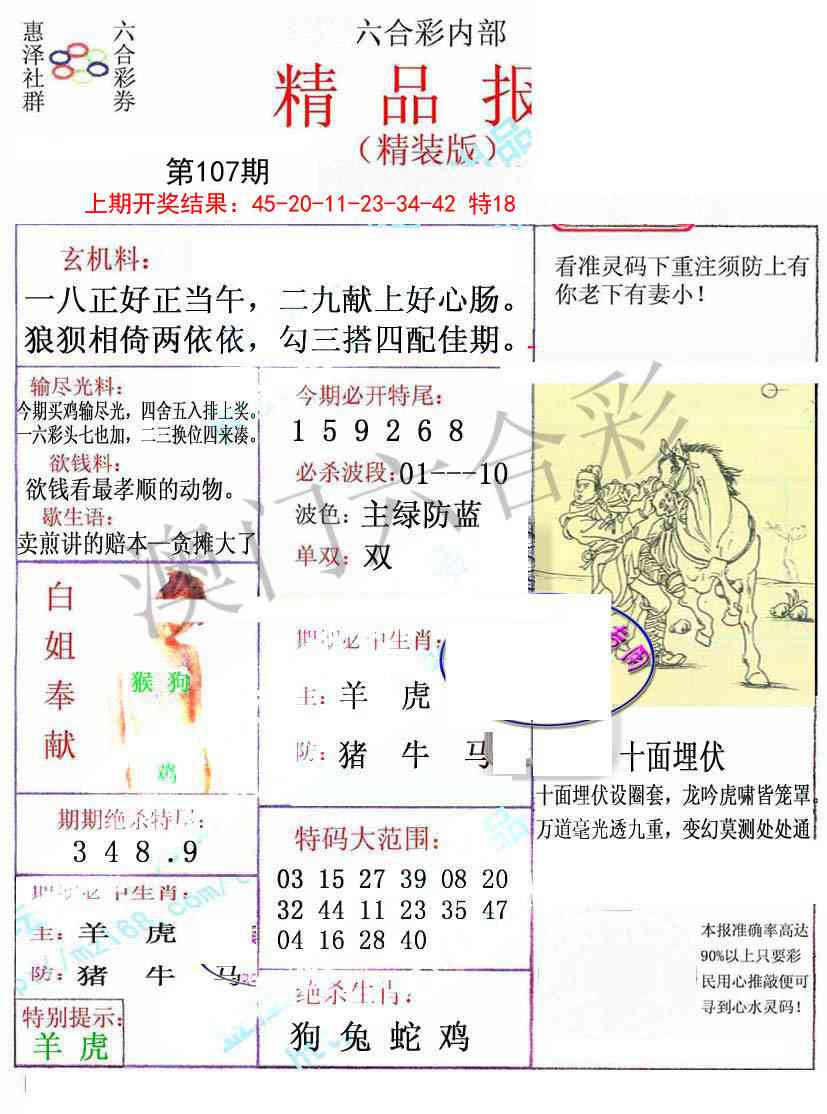 惠泽社群
六合彩券
六合彩内部
精品报
（精装版）
第107期
上期开奖结果：45-20-11-23-34-42 特18
玄机料：
一八正好正当午，二九献上好心肠。
狼狈相倚两依依，勾三搭四配佳期。
看准灵码下重注须防上有
你老下有妻小！
输尽光料：
今期买鸡输尽光，四舍五入排上奖。
一六彩头七也加，二三换位四来凑。
欲钱料：
欲钱看最孝顺的动物。
歇生语：
卖煎讲的赔本—贪摊大了
今期必开特尾：
1 5 9 2 6 8
必杀波段：01---10
波色：主绿防蓝
单双：双
澳门六合彩
白姐奉献
猴 狗
鸡
期期必中生肖：
主：羊 虎
防：猪 牛 马
十面埋伏
十面埋伏设圈套，龙吟虎啸皆笼罩
万道毫光透九重，变幻莫测处处通
期期绝杀特尾：
3 4 8 . 9
期期必中生肖：
主：羊 虎
防：猪 牛 马
特别提示：
羊 虎
特码大范围：
03 15 27 39 08 20
32 44 11 23 35 47
04 16 28 40
绝杀生肖：
狗 兔 蛇 鸡
本报准确率高达
90%以上只要彩
民用心推敲便可
寻到心水灵码！